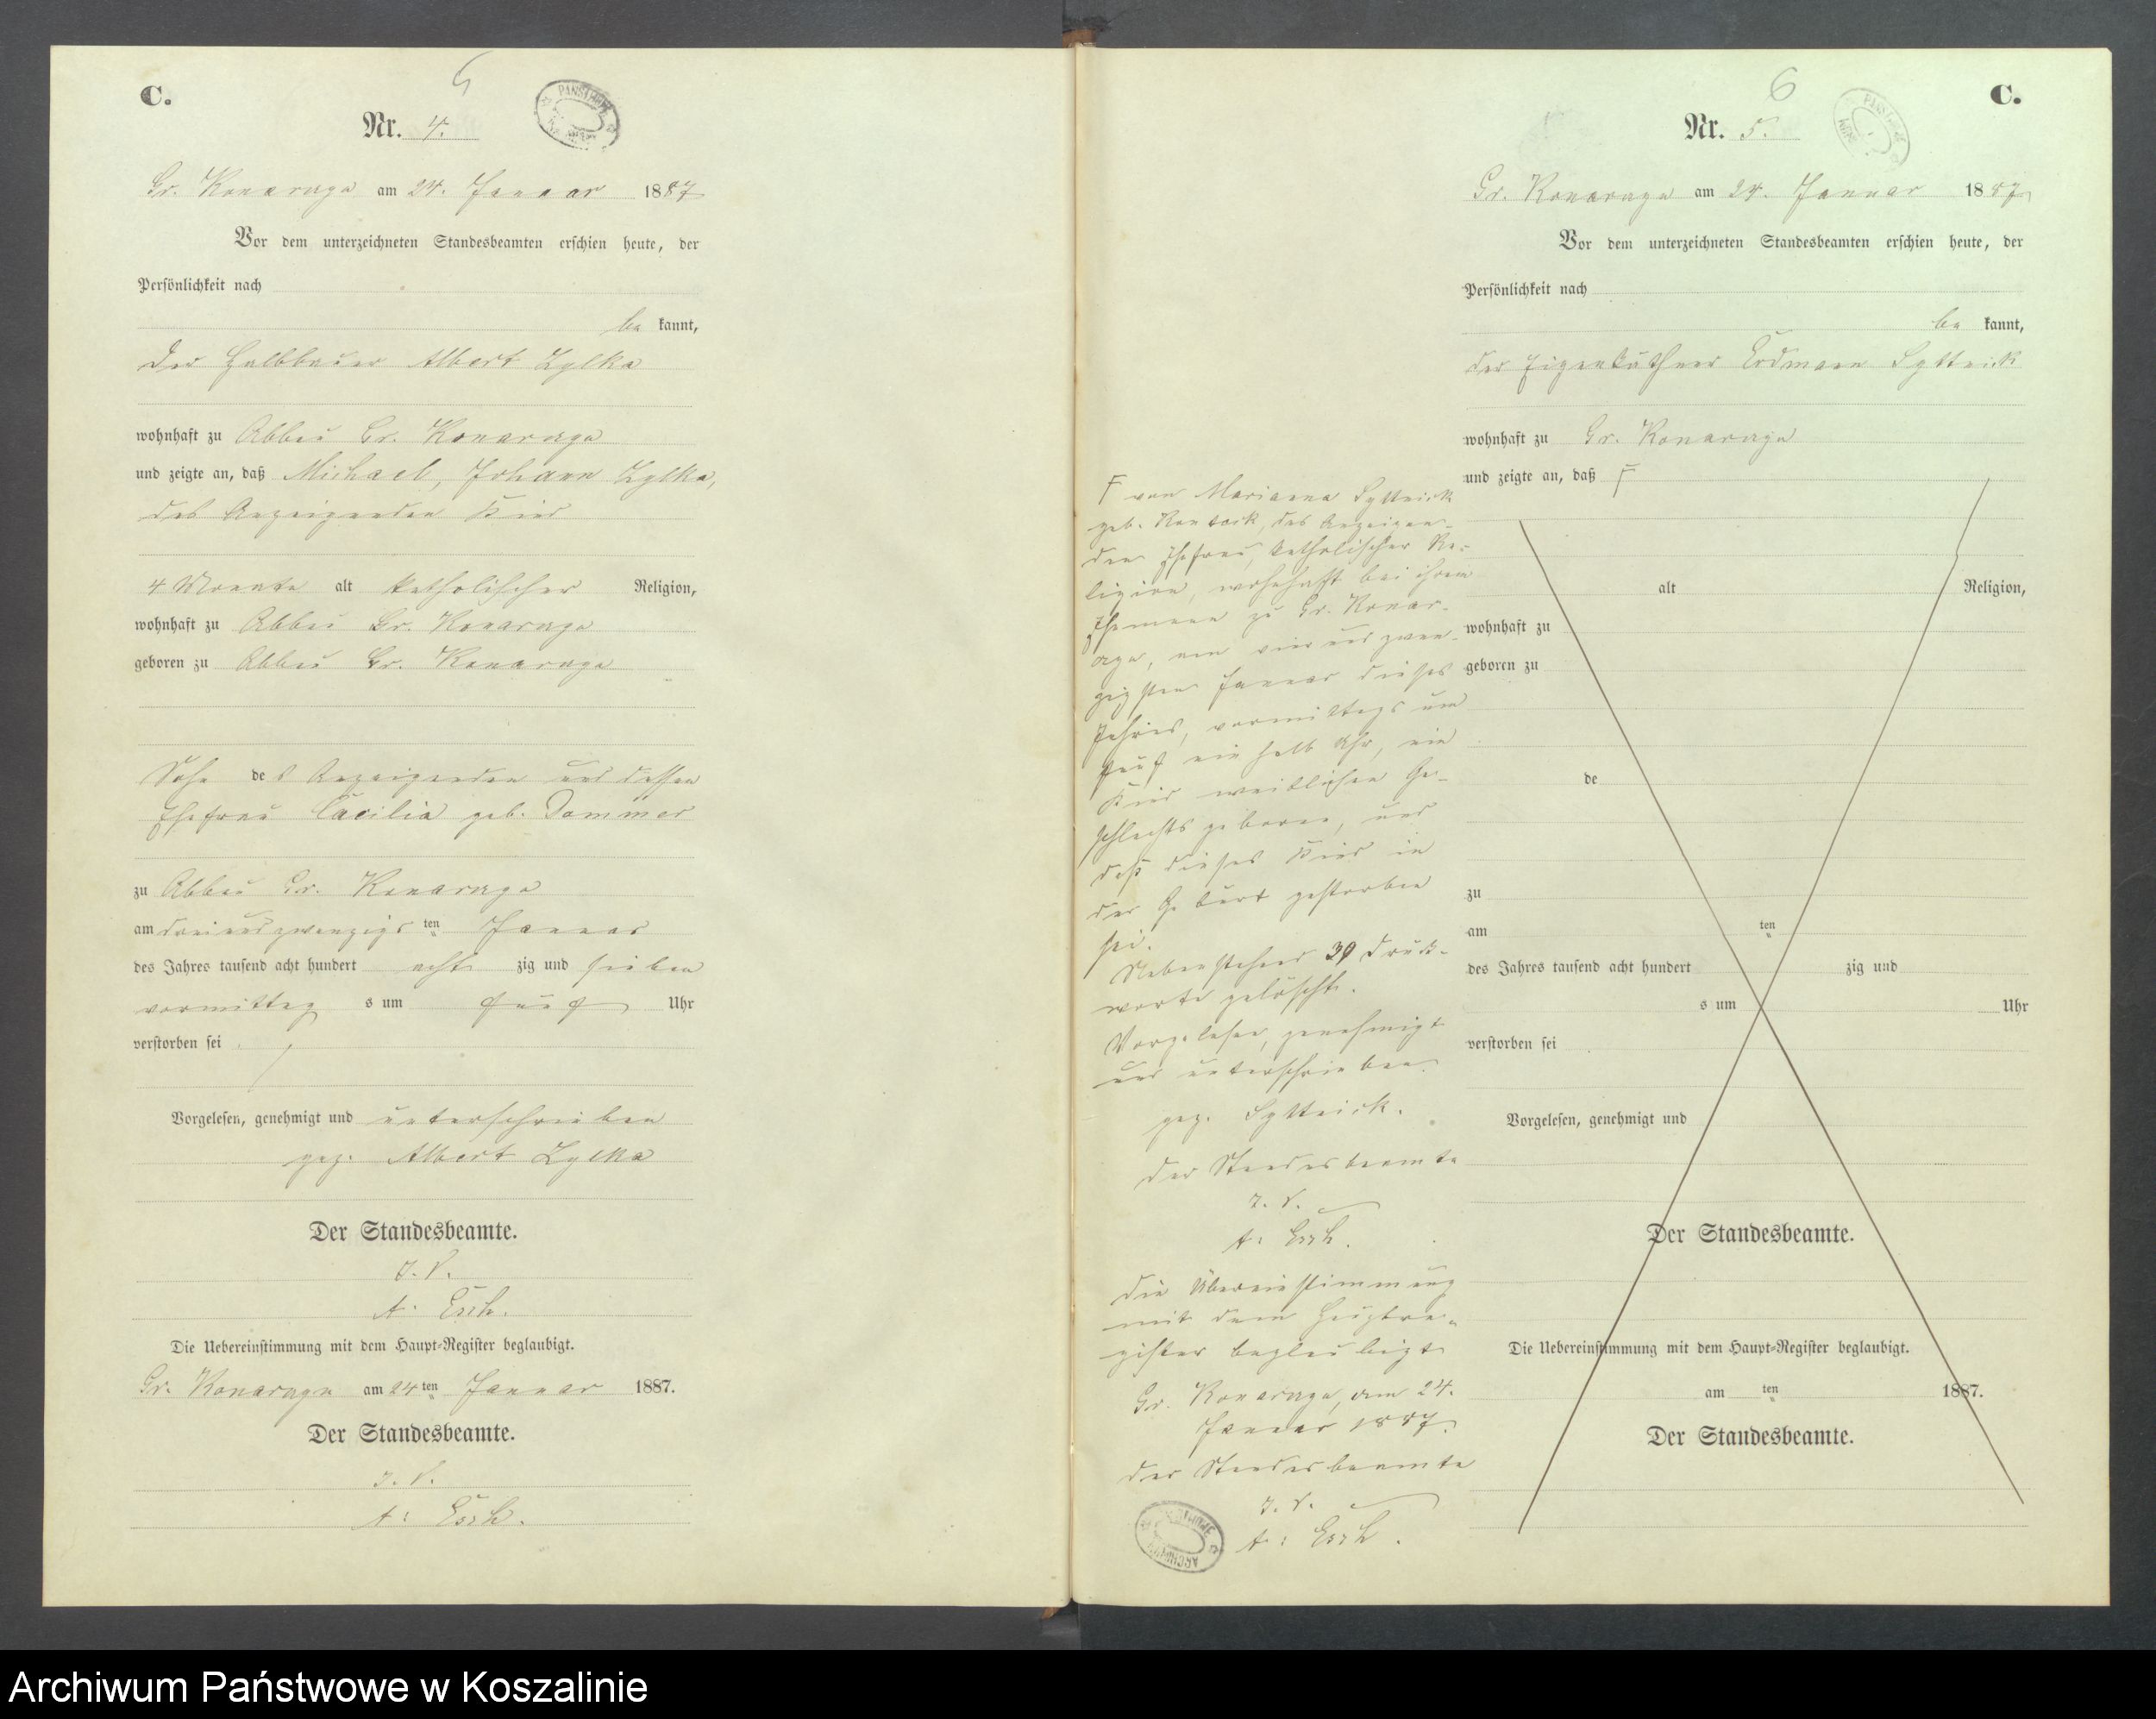 C.
5
Nr. 4.
Gr. Konarzyn am 24. Januar 1887
Vor dem unterzeichneten Standesbeamten erschien heute, der
Persönlichkeit nach
be kannt,
der Halbbauer Albert Zylka
wohnhaft zu Abbau Gr. Konarzyn
und zeigte an, daß Michael, Johann Zylka,
des Anzeigenden Kind
4 Monate alt katholischer Religion,
wohnhaft zu Abbau Gr. Konarzyn
geboren zu Abbau Gr. Konarzyn
Sohn des Anzeigenden und dessen
Ehefrau Cäcilia geb. Dommer
zu Abbau Gr. Konarzyn
am dreiundzwanzigsten Januar
des Jahres tausend acht hundert achtzig und sieben
vormittags um fünf Uhr
verstorben sei
Vorgelesen, genehmigt und unterschrieben
gez. Albert Zylka
Der Standesbeamte.
I. V.
A. Esch.
Die Uebereinstimmung mit dem Haupt-Register beglaubigt.
Gr. Konarzyn am 24ten Januar 1887.
Der Standesbeamte.
I. V.
A. Esch.
6
C.
Nr. 5.
Gr. Konarzyn am 24. Januar 1887
Vor dem unterzeichneten Standesbeamten erschien heute, der
Persönlichkeit nach
be kannt,
der Eigenkäthner Erdmann
wohnhaft zu Gr. Konarzyn
und zeigte an, daß F
alt Religion,
wohnhaft zu
geboren zu
de
zu
am ten
des Jahres tausend acht hundert zig und
s um Uhr
verstorben sei
Vorgelesen, genehmigt und
Der Standesbeamte.
Die Uebereinstimmung mit dem Haupt-Register beglaubigt.
am ten 1887.
Der Standesbeamte.
F von Marianna
geb. des Anzeigen-
den Ehefrau, katholischer Re-
ligion, wohnhaft bei ihrem
Ehemann zu Gr. Konar-
zyn, am vier und zwan-
zigsten Januar dieses
Jahres, vormittags um
fünf ein halb Uhr, ein
Kind weiblichen Ge-
schlechts geboren, und
daß dieses Kind in
der Geburt gestorben
sei.
Nebenstehend 39 Druck-
worte gelöscht.
Vorgelesen, genehmigt
und unterschrieben.
gez.
Der Standesbeamte
I. V.
A. Esch.
Die Übereinstimmung
mit dem Hauptre-
gister beglaubigt
Gr. Konarzyn, am 24.
Januar 1887.
Der Standesbeamte
I. V.
A. Esch.
Archiwum Państwowe w Koszalinie